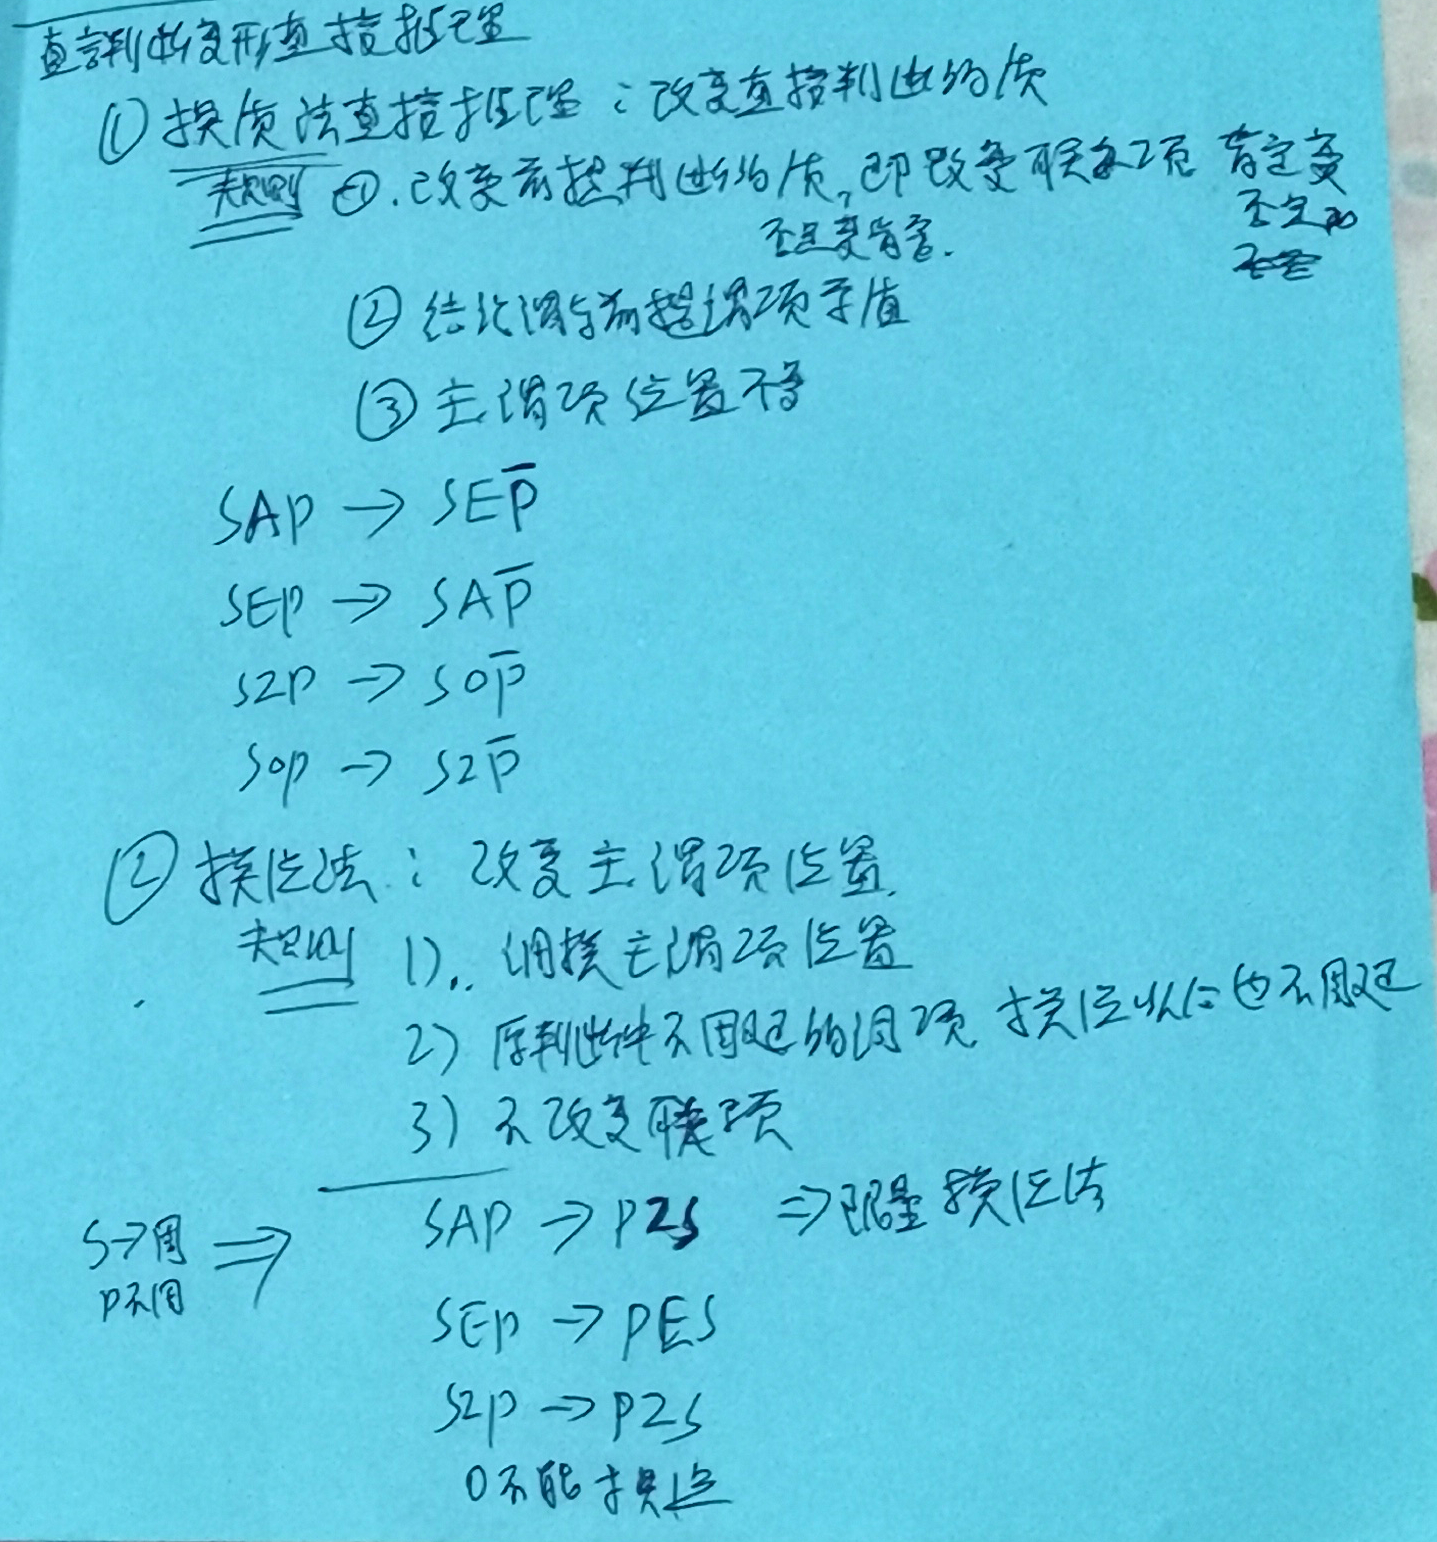 直言判断变形直接推理
① 换质法直接推理：改变直接判断的质
规则 ①.改变前提判断的质，即改变联项 肯定变
否定变肯定. 否定
② 结论谓与前提谓项矛盾
③ 主谓项位置不变
SAP → SEP̅
SEP → SAP̅
SIP → SOP̅
SOP → SIP̅
② 换位法：改变主谓项位置.
规则 1).. 调换主谓项位置
2) 原判断中不周延的词项 换位以后也不周延
3) 不改变联项
SAP → PIS ⇒ 限量换位法
S→周
P不周 ⇒
SEP → PES
SIP → PIS
O不能换位